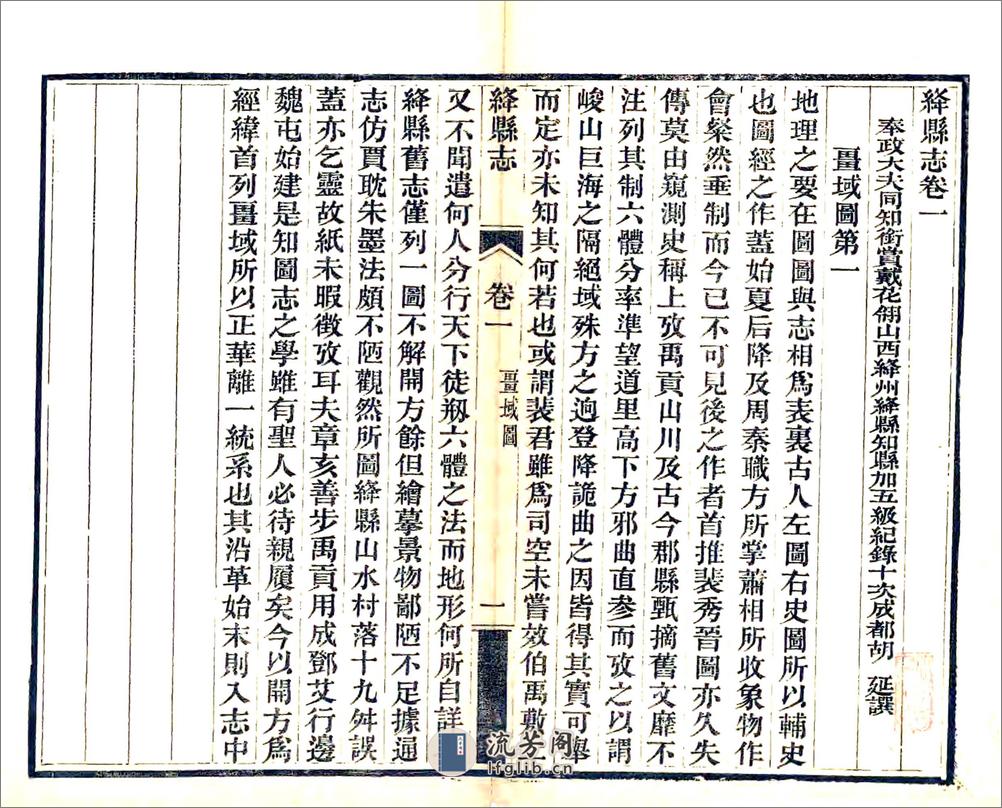 絳縣志卷一
奉政大夫同知銜賞戴花翎山西絳州絳縣知縣加五級紀錄十次成都胡 延譔
畺域圖第一
地理之要在圖圖與志相爲表裏古人左圖右史圖所以輔史
也圖經之作蓋始夏后降及周秦職方所掌蕭相所收象物作
會粲然垂制而今已不可見後之作者首推裴秀晉圖亦久失
傳莫由窺測史稱上攷禹貢山川及古今郡縣甄摘舊文靡不
注列其制六體分率準望道里高下方邪曲直參而攷之以謂
峻山巨海之隔絕域殊方之迥登降詭曲之因皆得其實可舉
而定亦未知其何若也或謂裴君雖爲司空未嘗效伯禹敷
絳縣志
卷一
畺域圖
一
又不聞遣何人分行天下徒剏六體之法而地形何所自詳
絳縣舊志僅列一圖不解開方餘但繪摹景物鄙陋不足據通
志仿賈耽朱墨法頗不陋觀然所圖絳縣山水村落十九舛誤
蓋亦乞靈故紙未暇徵攷耳夫章亥善步禹貢用成鄧艾行邊
魏屯始建是知圖志之學雖有聖人必待親履矣今以開方爲
經緯首列畺域所以正華離一統系也其沿革始末則入志中
流芳閣
lfglib.cn